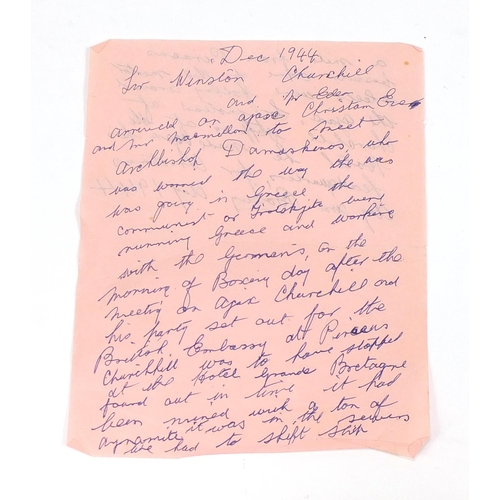 Dec 1944
Sir Winston Churchill
and Mr Eden
arrived on ajax Christam Eve
and Mr Macmillon to meet
Archbishop Damaskinos, who
was worried the way the was
was going in Greece the
communist or Trotskyte were
running Greece and working
with the Germans, on the
morning of Boxing day after the
meeting on Ajax Churchill and
his party set out for the
British Embassy at Piraeus
Churchill was to have stopped
at the Hotel Grande Bretagne
found out in time it had
been mined with a ton of
dynamite it was in the sewers
we had to shift